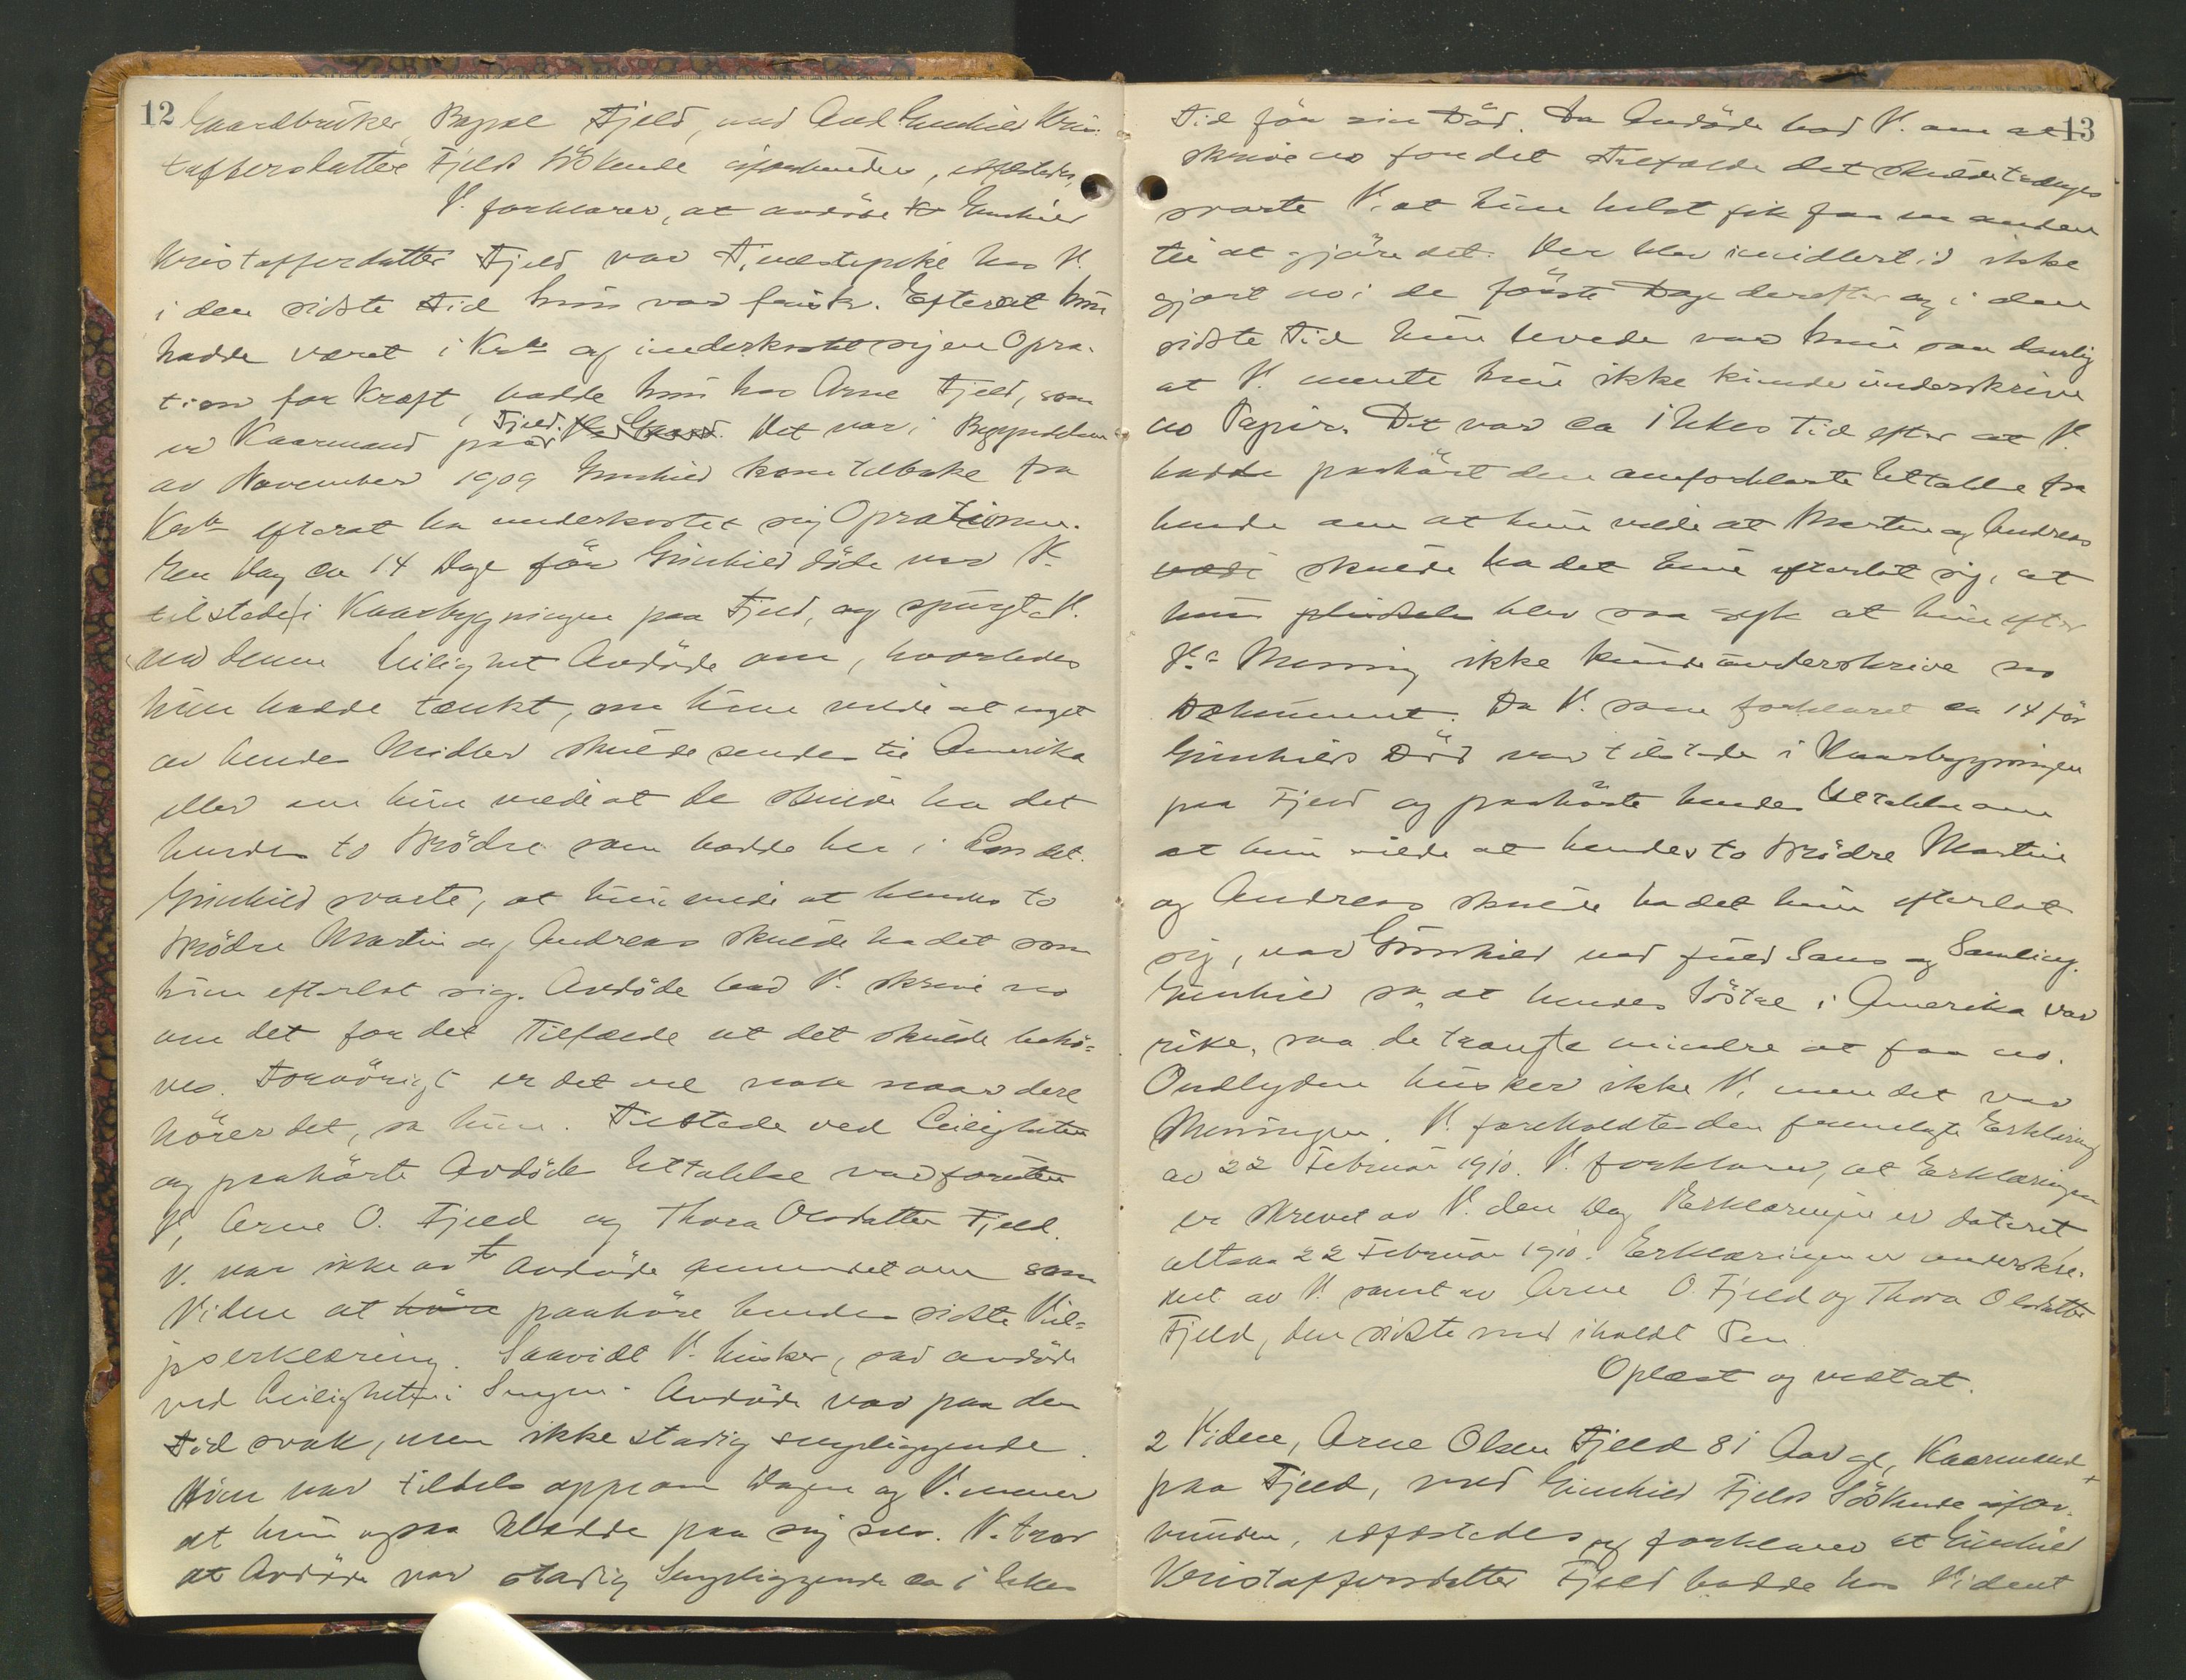 12
Gaardbruker, Fjeld, med Avd. Gunhild Kris-
toffersdatter Fjeld Söskende uforbunden, edfæstedes,
V. forklarer, at avdöde Kr Gunhild
Kristoffersdatter Fjeld var Tjenestepike hos V.
i den sidste Tid hun var frisk. Efterat hun
hadde været i Kr.a og underkastet sig en Opra-
tion for Kræft, bodde hun hos Arne Fjeld, som
er Kaarmand paa Fjeld. Det var i Begyndelsen
av November 1909 Gunhild kom tilbake fra
Kr.a efterat ha underkastet sig Oprationen.
En Dag ca 14 Dage för Gunhild döde var V.
tilstede i Kaarbygningen paa Fjeld, og spurgte V.
ved denne Leilighet Avdöde om, hvorledes
hun hadde tænkt, om hun vilde at noget
av hendes Midler skulde sendes til Amerika
eller om hun vilde at de skulde ha det
hendes to Brödre som bodde her i Landet.
Gunhild svarte, at hun vilde at hendes to
Brödre Martin og Andreas skulde ha det som
hun efterlot sig. Avdöde bad V. skrive no
om det for det Tilfælde at det skulde behö-
ves. Forövrigt er det vel nok naar dere
hörer det, sa hun. Tilstede ved Leiligheten
og paahörte Avdödes Uttalelse var foruten
V, Arne O. Fjeld og Thora Olsdatter Fjeld.
V. var ikke av Avdöde anmodet om som
Vidne at höre paahöre hendes sidste Vil-
jeserklæring. Saavidt V. husker, sad avdöde
ved Leiligheten i Sengen. Avdöde var paa den
Tid svak, men ikke stadig sengeliggende.
Hun var tildels oppe om Dagen og V. mener
at hun ogsaa klædde paa sig selv. V. tror
at Avdöde var stadig Sengeliggende ca 1 Ukes
13
Tid för sin Död. Da Avdöde bad V. om at
skrive no for det Tilfælde det skulde trænges
svarte V. at hun helst fik faa en anden
til at gjöre det. Der blev imidlertid ikke
gjort no i de förste Dage derefter og i den
sidste Tid hun levede var hun saa daarlig
at V. mente hun ikke kunde underskrive
no Papir. Det var ca 1 Ukes Tid efter at V.
hadde paahört den omforklarte Uttalelse fra
hende om at hun vilde at Martin og Andreas
skulde ha det hun efterlot sig, at
hun pludselig blev saa syk at hun efter
V.s Mening ikke kunde underskrive no
Dokument. Da V. som forklaret ca 14 för
Gunhilds Död var tilstede i Kaarbygningen
paa Fjeld og paahörte hendes Uttalelse om
at hun vilde at hendes to Brödre Martin
og Andreas skulde ha det hun efterlot
sig, var Gunhild ved fuld Sans og Samling.
Gunhild sa at hendes Söstre i Amerika var
rike, saa de trængte mindre at faa no.
Ordlyden husker ikke V, men det var
Meningen. V. foreholdtes den fremlagte Erklæring
av 22 Februar 1910. V. forklarer, at Erklæringen
er skrevet av V. den Dag Erklæringen er dateret
altsaa 22 Februar 1910. Erklæringen er underskre-
vet av V. samt av Arne O. Fjeld og Thora Olsdatter
Fjeld, den sidste med iholdt Pen
Oplæst og vedtat.
2 Vidne, Arne Olsen Fjeld 81 Aar gl, Kaarmand
paa Fjeld, med Gunhild Fjelds Söskende ufor-
bunden, edfæstedes og forklarer at Gunhild
Kristoffersdatter Fjeld bodde hos Vidnet